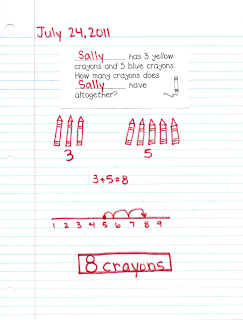 July 24, 2011
Sally has 3 yellow
crayons and 5 blue crayons.
How many crayons does
Sally have
altogether?
3 5
3+5=8
1 2 3 4 5 6 7 8 9
8 crayons